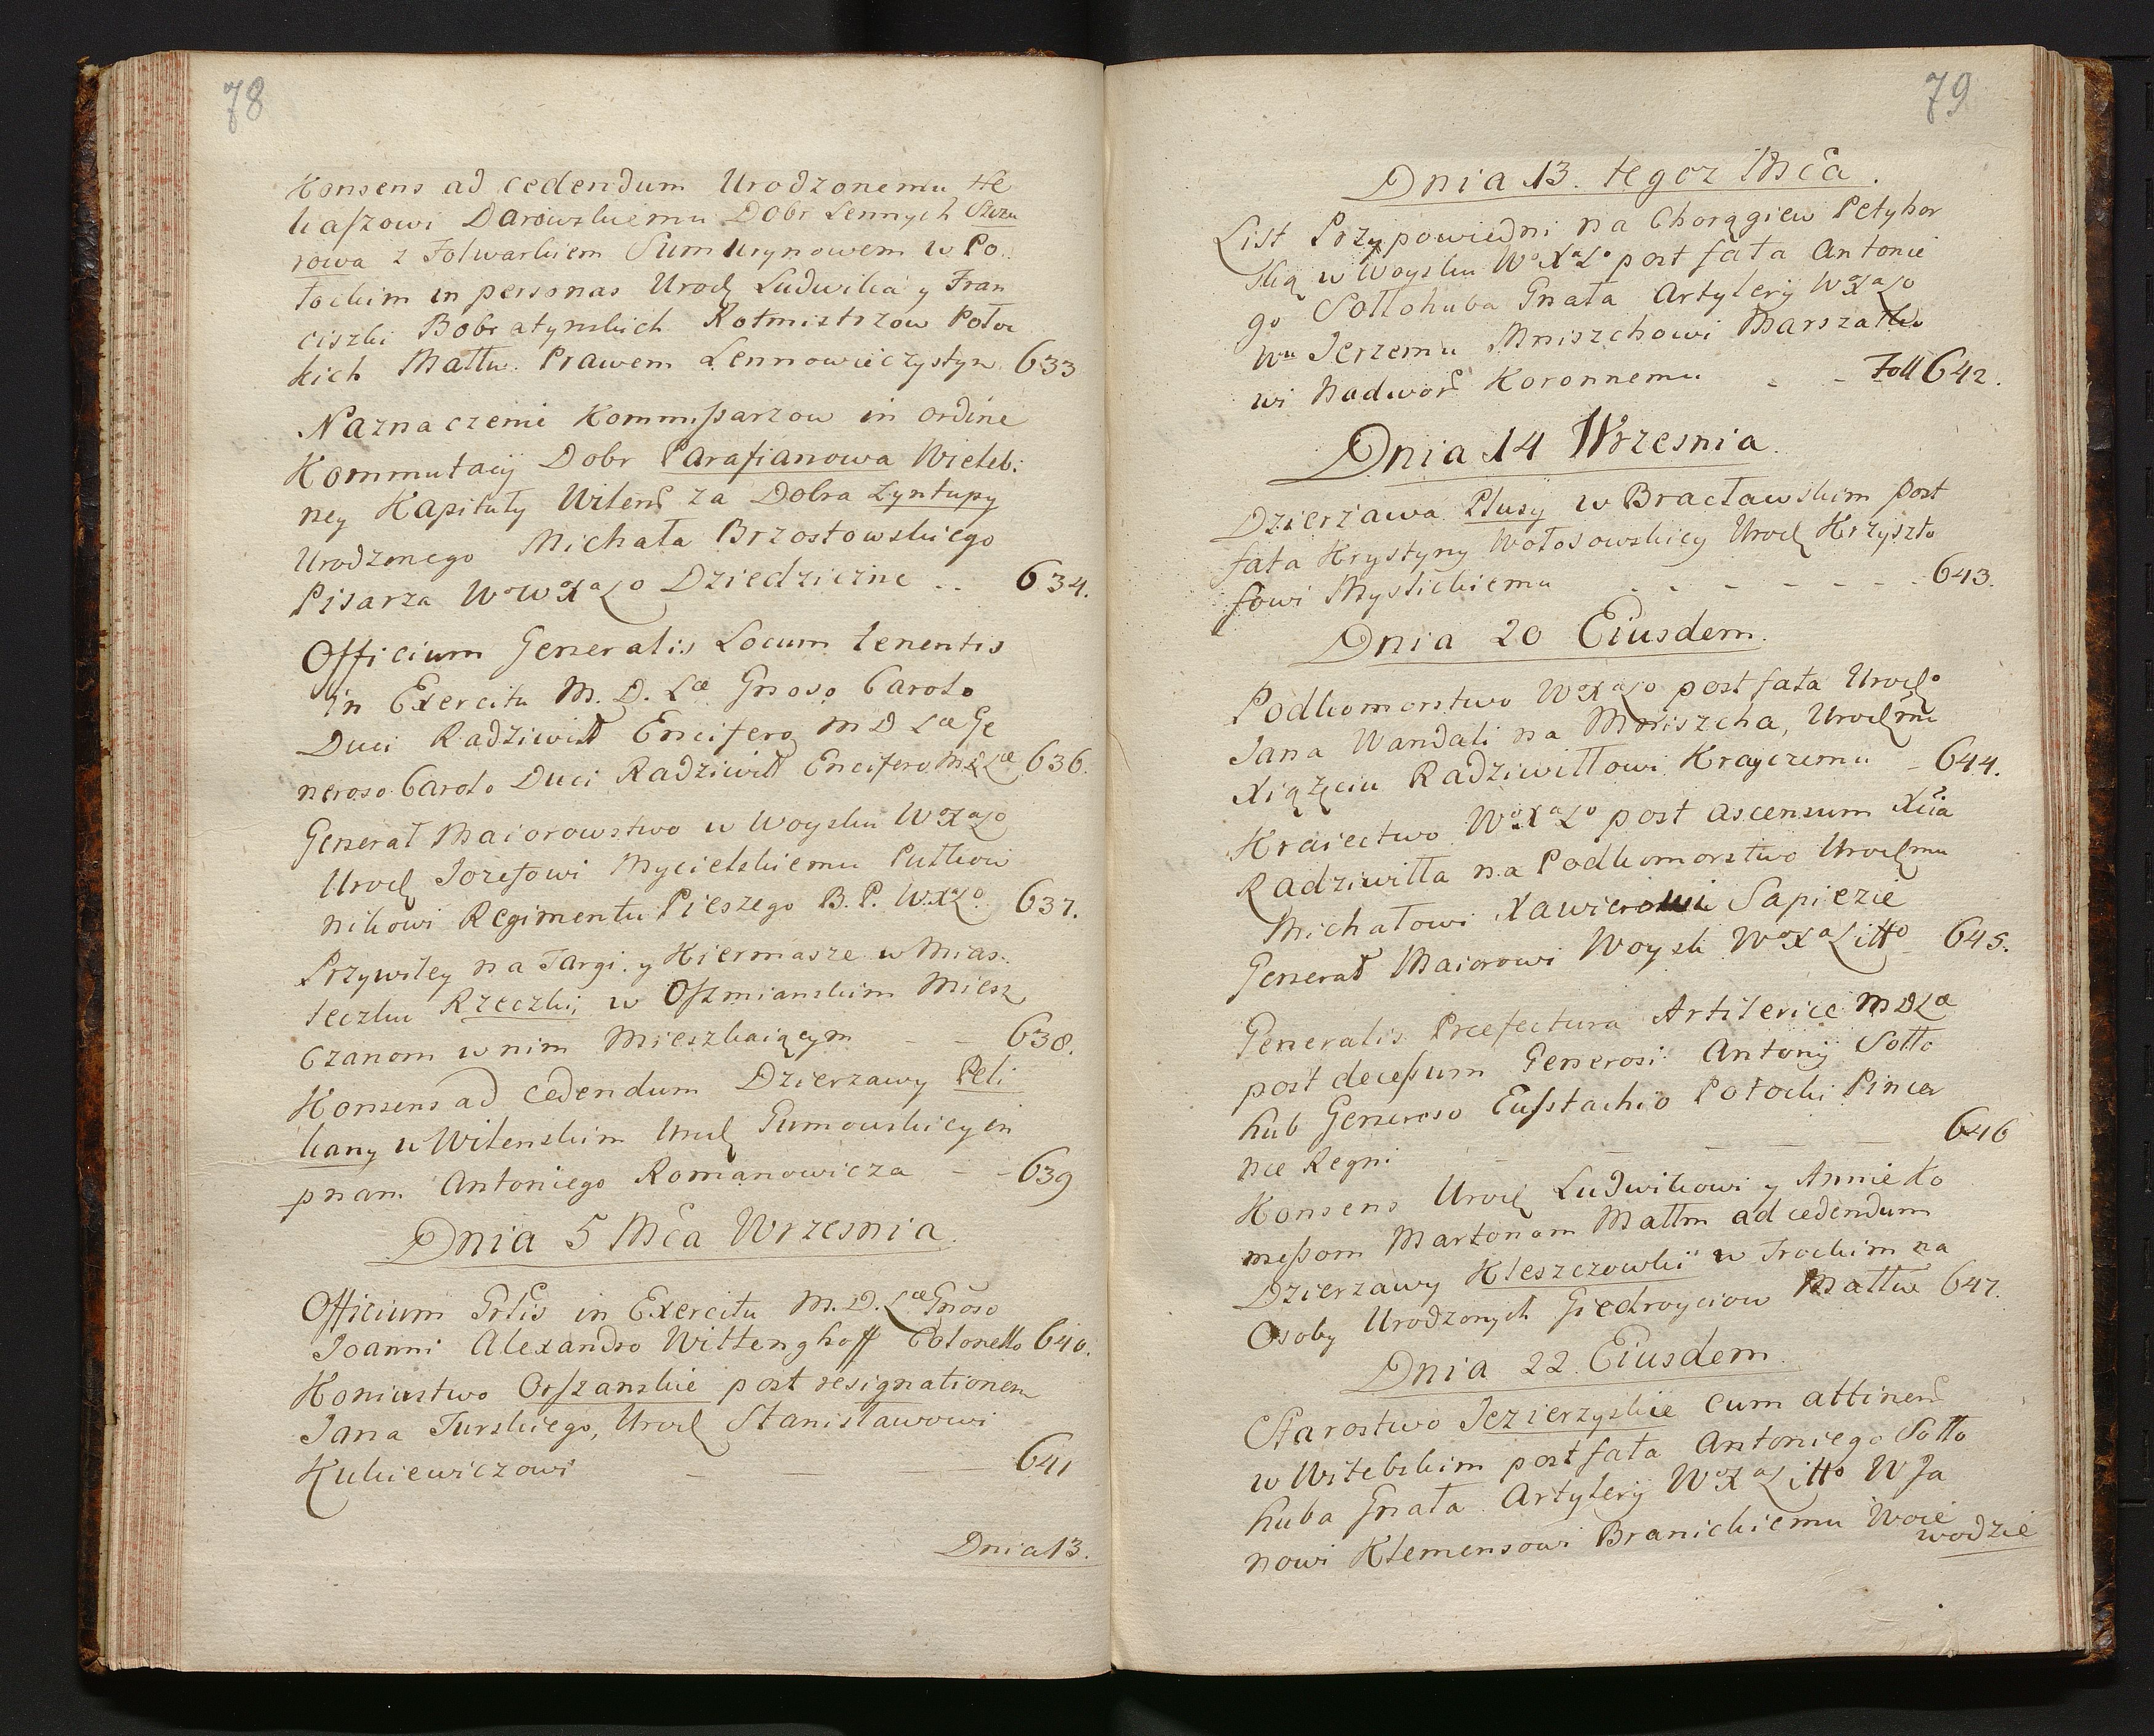 78
Konsens ad cedendum Urodzonemu He
liaszowi Darowskiemu Dobr Lennych Szczu
rowa z Folwarkiem Sumurynowem w Po
łockim in personas Urodz Ludwika y Fran
ciszki Bobratynskich Rotmistrzow Połoc
kich Małtw. Prawem Lennowieczystym 633
Naznaczenie Kommissarzow in ordine
Kommutacij Dobr Parafianowa Wieleb:
ney Kapituły Wilens za Dobra Łyntupy
Urodzonego Michała Brzostowskiego
Pisarza Wo W Xa Lo Dziedziczne .. 634.
Officium Generalis Locum tenentis
in Exercitu M. D. Læ Gnoso Carolo
Duci Radziwiłł Ensifero M D Læ Ge
neroso Carolo Duci Radziwiłł Ensifero M D Læ 636.
Generał Maiorowstwo w Woysku Wo Xa Lo
Urodz Jozefowi Mycielskiemu Pułkow
nikowi Regimentu Pieszego B. P. W. X. Lo. 637.
Przywiley na Targi y Kiermasze w Mias
teczku Rzeczki w Oszmianskim Miesz
czanom w nim Mieszkaiącym - - 638.
Konsens ad cedendum Dzierzawy Peli
kany w Wilenskim Urodz Gumowskiey in
pnam Antoniego Romanowicza - - 639
Dnia 5 Mca Wrzesnia.
Officium Grlis in Exercitu M. D. Læ Gnoso
Joanni Alexandro Wittenghoff Colonello 640.
Koniustwo Orszanskie post resignationem
Jana Turskiego, Urodz Stanisławowi
Kukiewiczowi - - 641
Dnia 13.
79
Dnia 13. tegoz Mca.
List Przypowiedni na Chorągiew Petyhor
ską w Woysku Wo Xa Lo post fata Antonie
go Sollohuba Gnała Artylerij Wo Xa Lo
Wu Jerzemu Mniszchowi Marszałko
wi Nadwor Koronnemu - - Foll 642.
Dnia 14 Wrzesnia.
Dzierzawa Plusy w Bracławskim post
fata Krystyny Wołosowskiey Urodz Krzyszto
fowi Mysłickiemu - - - - - - 643.
Dnia 20 Eiusdem.
Podkomorstwo Wo Xa Lo post fata Urodzo
Jana Wandali na Mniszcha, Urodzmu
Xiążęciu Radziwiłłowi Krayczemu - 644.
Kraiectwo Wo Xa Lo post ascensum Xcia
Radziwiłła na Podkomorstwo Urodzmu
Michałowi Xawierowi Sapiezie
Generał Maiorowi Woysk Wo Xa Litto - 645.
Generalis Præfectura Artileriæ M D Læ
post decessum Generosi Antonij Sollo
hub Generoso Eustachio Potocki Pincer
næ Regni - - - - 646
Konsens Urodz Ludwikowi y Annie Ło
messom Martonom Małłm ad cedendum
Dzierzawy Kleszczowki w Trockim na
Osoby Urodzonych Giedroyciow Małtw 647.
Dnia 22. Eiusdem.
Starostwo Jezierzyskie cum attinen
w Witebskim post fata Antoniego Sołło
huba Gnała Artylerij Wo Xa Litto W Ja
nowi Klemensowi Branickiemu Woie
wodzie